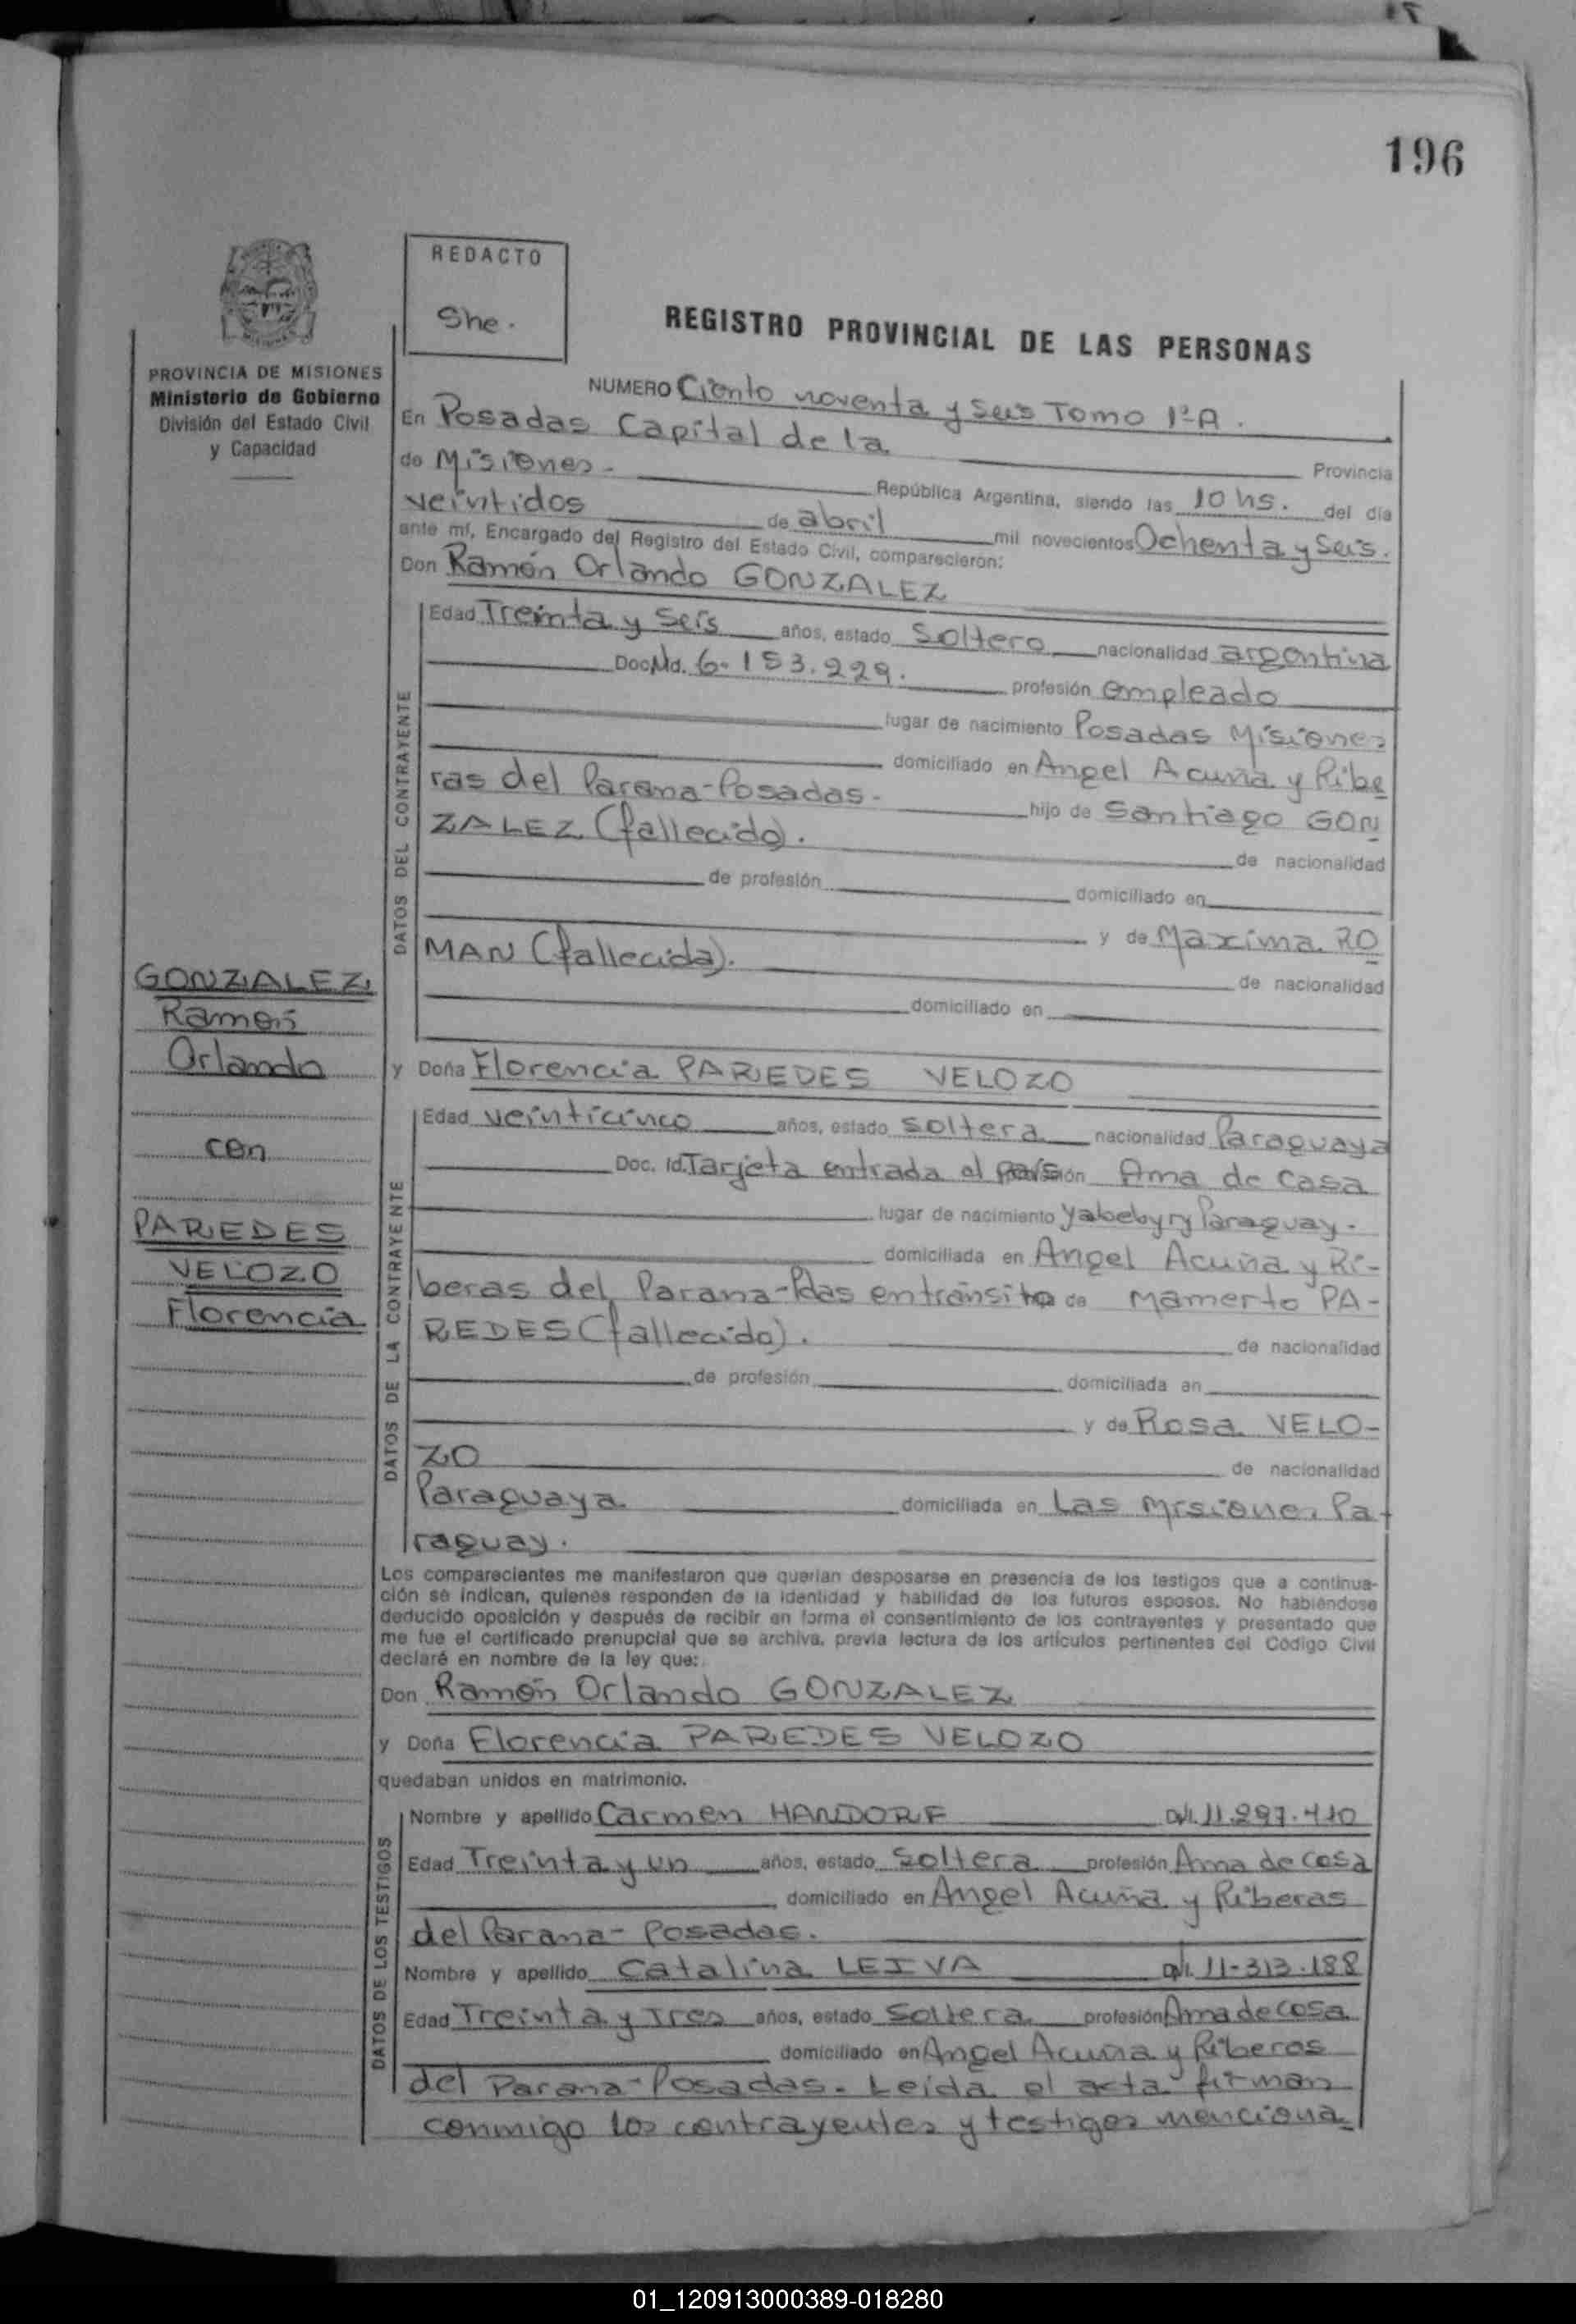 196
REDACTO
She.
REGISTRO PROVINCIAL DE LAS PERSONAS
PROVINCIA DE MISIONES
Ministerio de Gobierno
División del Estado Civil
y Capacidad
NUMERO Ciento noventa y seis Tomo 1º A.
En Posadas Capital de la Provincia
de Misiones. República Argentina, siendo las 10 hs. del día
veintidos de abril mil novecientos Ochenta y Seis.
ante mí, Encargado del Registro del Estado Civil, comparecieron:
Don Ramón Orlando GONZALEZ
DATOS DEL CONTRAYENTE
Edad Treinta y Seis años, estado Soltero nacionalidad argentina
Doc. Id. 6.153.229. profesión empleado
lugar de nacimiento Posadas Misiones
domiciliado en Angel Acuña y Ribe
ras del Parana-Posadas- hijo de Santiago GON
ZALEZ (fallecido). de nacionalidad
de profesión domiciliado en
y de Maxima RO
MAN (fallecida). de nacionalidad
domiciliado en
y Doña Florencia PAREDES VELOZO
DATOS DE LA CONTRAYENTE
Edad veinticinco años, estado soltera nacionalidad Paraguaya
Doc. Id. Tarjeta entrada al país Ama de casa
lugar de nacimiento Yabebyry Paraguay.
domiciliada en Angel Acuña y Ri-
beras del Parana-Pdas en transito de Mamerto PA-
REDES (fallecido). de nacionalidad
de profesión domiciliada en
y de Rosa VELO-
ZO de nacionalidad
Paraguaya domiciliada en Las Misiones Pa-
raguay.
GONZALEZ
Ramón
Orlando
con
PAREDES
VELOZO
Florencia
Los comparecientes me manifestaron que querían desposarse en presencia de los testigos que a continua-
ción se indican, quienes responden de la identidad y habilidad de los futuros esposos. No habiéndose
deducido oposición y después de recibir en forma el consentimiento de los contrayentes y presentado que
me fue el certificado prenupcial que se archiva, previa lectura de los artículos pertinentes del Código Civil
declaré en nombre de la ley que:
Don Ramón Orlando GONZALEZ
y Doña Florencia PAREDES VELOZO
quedaban unidos en matrimonio.
DATOS DE LOS TESTIGOS
Nombre y apellido Carmen HANDORF 11.297.410
Edad Treinta y un años, estado Soltera profesión Ama de casa
domiciliado en Angel Acuña y Riberas
del Parana-Posadas.
Nombre y apellido Catalina LEIVA 11-313.188
Edad Treinta y Tres años, estado Soltera profesión Ama de casa
domiciliado en Angel Acuña y Riberas
del Parana-Posadas. Leída el acta firman
conmigo los contrayentes y testigos menciona-
01_120913000389-018280